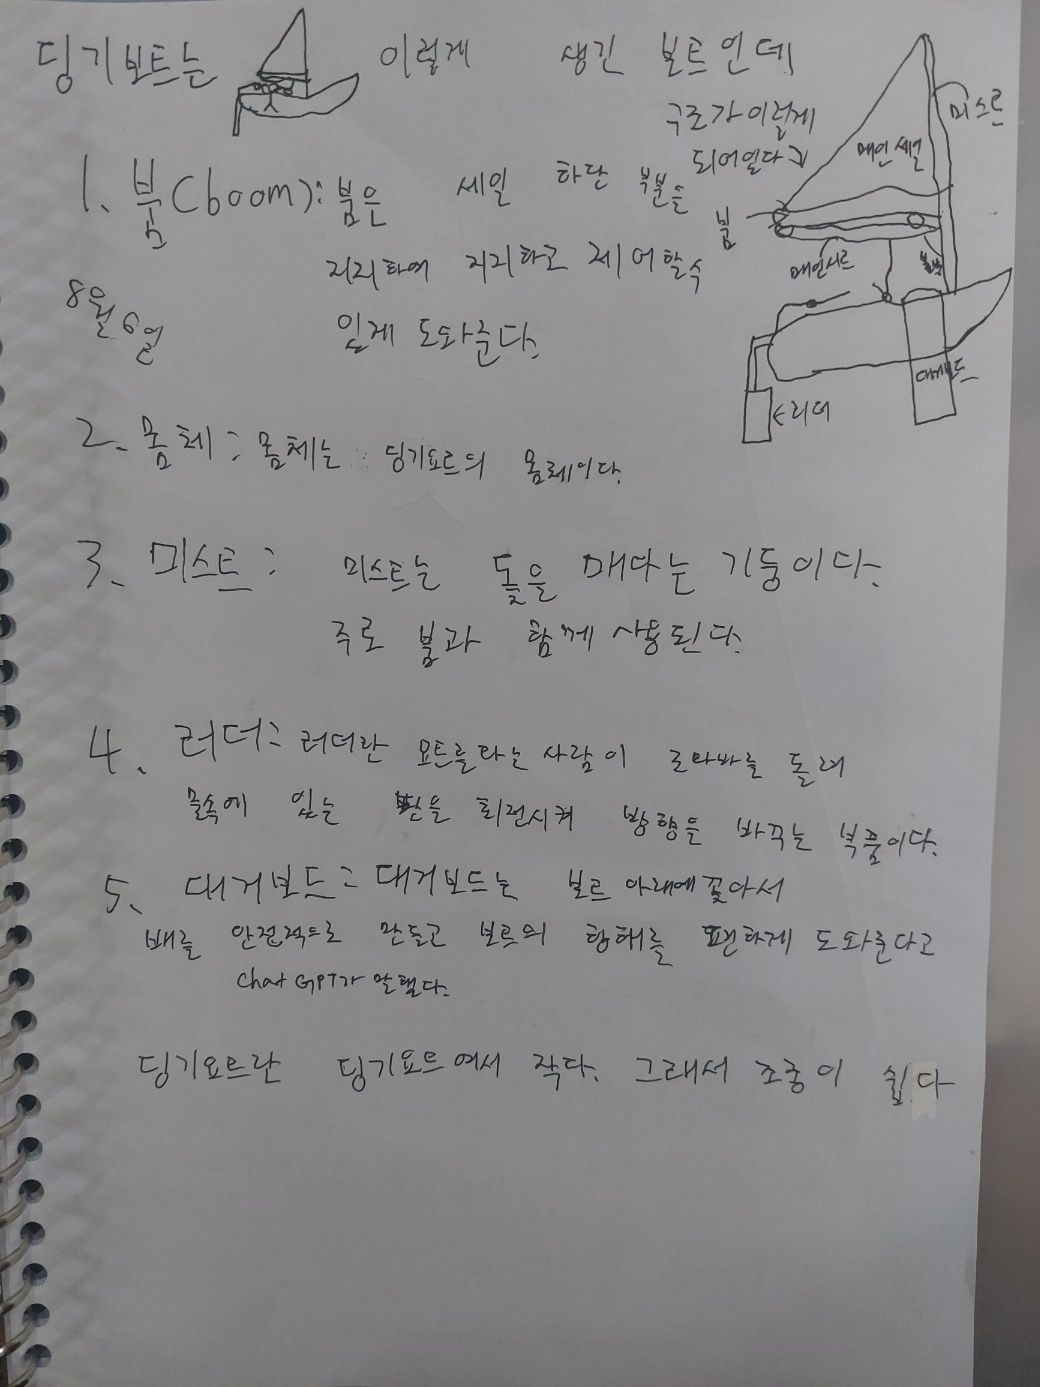 딩기보트는 이렇게 생긴 보트인데
구조가 이렇게
되어있다
미스트
메인세일
붐
메인시트
대거보드
러더
1. 붐(boom): 붐은 세일 하단 부분을
지지하여 지지하고 제어할수
있게 도와준다.
8월 6일
2. 몸체: 몸체는 딩기요트의 몸체이다.
3. 미스트: 미스트는 돛을 매다는 기둥이다.
주로 붐과 함께 사용된다.
4. 러더: 러더란 요트를 타는 사람이 돌려
물속에 있는 판을 회전시켜 방향을 바꾸는 부품이다.
5. 대거보드: 대거보드는 보트 아래에 꽂아서
배를 안전적으로 만들고 보트의 항해를 편하게 도와준다고
chat GPT가 말했다.
딩기요트란 딩기요트여서 작다. 그래서 조종이 쉽다